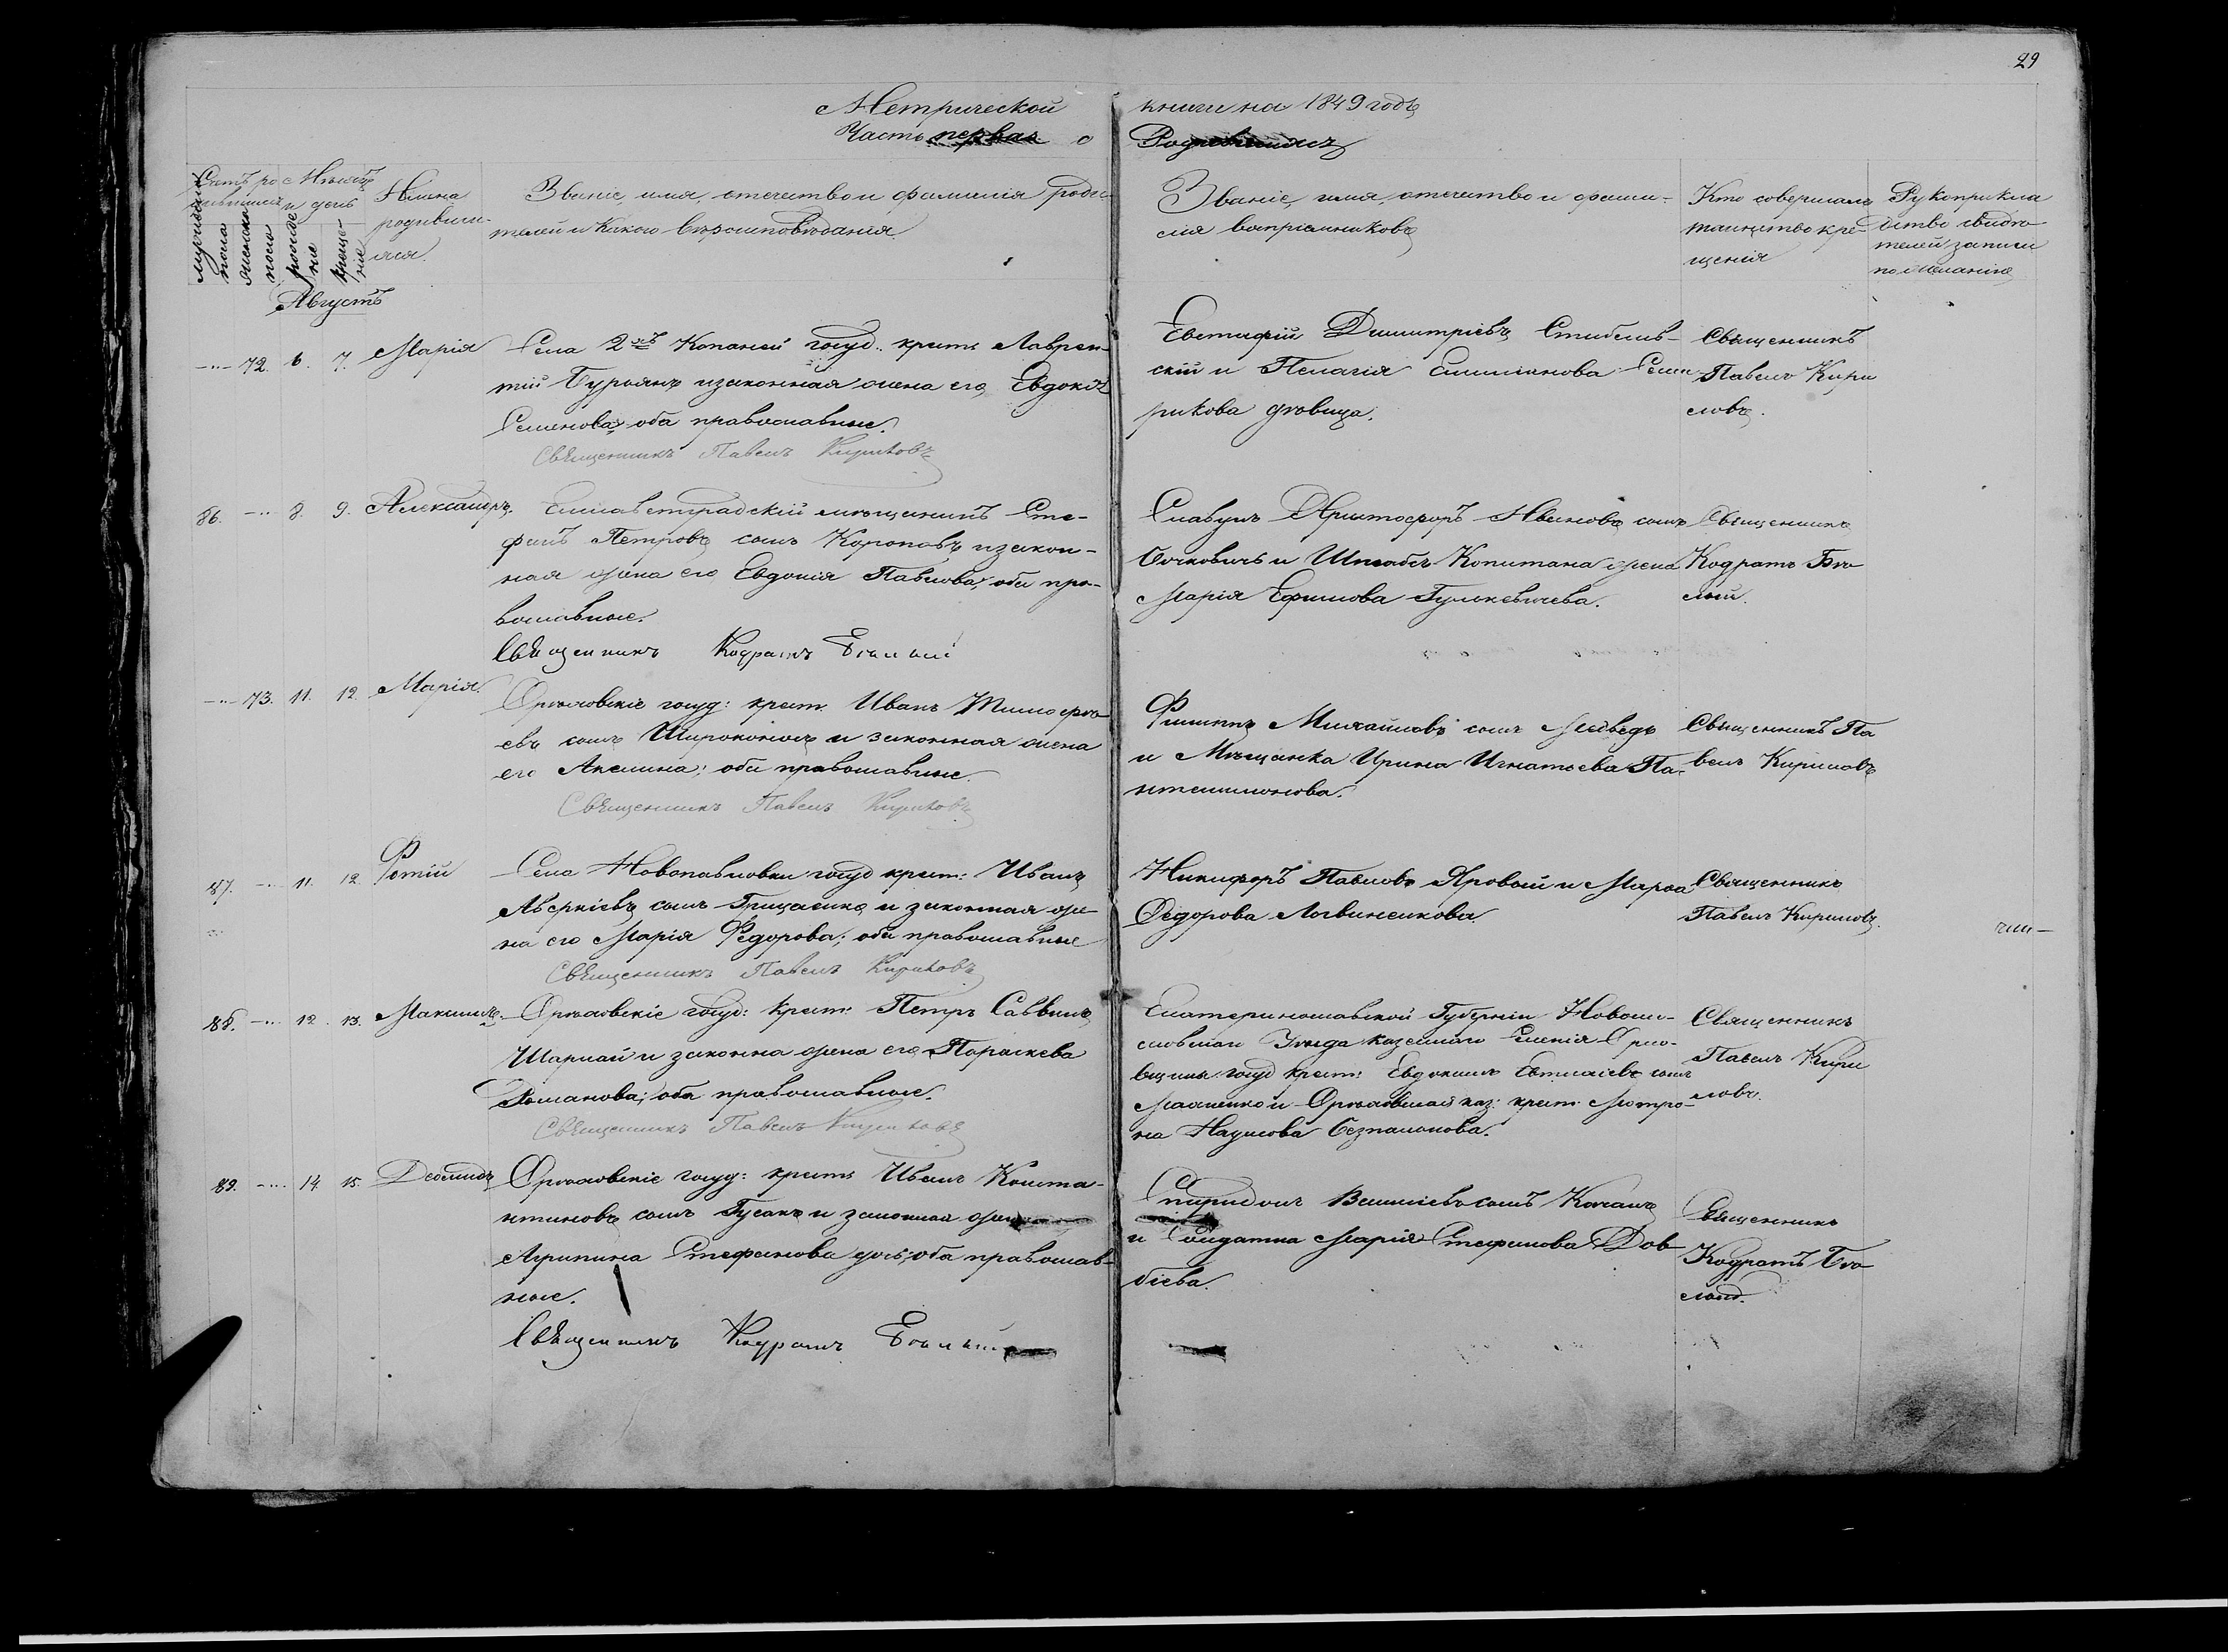 29
Метрической книги на 1849 годъ
Часть первая о Родившихся
Имена
родивши-
яся.
Званіе, имя, отечество и фамилія роди-
телей и какого вѣроисповѣданія.
Званіе, имя, отечество и фами-
лія воспріемниковъ
Кто совершалъ
таинство кре-
щенія
Рукоприкла
дство свидѣ-
телей записи
по желанію
Августъ
-"- 72. 6. 7. Марія
Села 2хъ Копаней госуд. крест. Лаврен-
тій Бурьянъ и законная жена его Евдокія
Семенова; оба православные.
Священникъ Павелъ Кириловъ
Евстафій Димитріевъ
и Пелагія Емиліанова
дѣвица.
Священникъ
Павелъ Кири
ловъ.
86. -"- 8. 9. Александръ.
Елисаветградскій мѣщанинъ Сте-
фанъ Петровъ сынъ и закон-
ная жена его Евдокія Павлова; оба пра-
вославные.
Священникъ Кодратъ Бѣлый
Христофоръ Ивановъ сынъ
и Штабсъ Капитана жена
Марія Ефимова Гулькевичева.
Священникъ
Кодратъ Бѣ
лый.
-"- 73. 11. 12. Марія.
Орѣховскіе госуд: крест. Иванъ Тимофѣ
евъ сынъ Широконосъ и законная жена
его Акилина; оба православные.
Священникъ Павелъ Кириловъ
Филиппъ Михайловъ сынъ Медведь
и Мѣщанка Ирина Игнатьева Па-
нтелимонова.
Священникъ Па
велъ Кириловъ
87. -"- 11. 12. Фотій
Села Новопавловки госуд крест: Иванъ
Аверкіевъ сынъ Грицаенко и законная же
на его Марія Федорова; оба православные
Священникъ Павелъ Кириловъ
Никифоръ Павловъ Яровой и Марѳа
Федорова Логвиненкова.
Священникъ
Павелъ Кириловъ.
88. -"- 12. 13. Максимъ.
Орѣховскіе госуд: крест: Петръ Саввинъ
Шарпай и законна жена его Параскева
Романова; оба православные.
Священникъ Павелъ Кириловъ
Екатеринославской Губерніи Новомо-
сковскаго Уѣзда казеннаго селенія Орло-
вщины госуд крест: Евдокимъ сынъ
и Орѣховская каз: крест. Матро-
на Наумова Безпалокова.
Священникъ
Павелъ Кири
ловъ.
89. -"- 14. 15. Діомидъ
Орѣховскіе госуд: крест: Иванъ Конста-
нтиновъ сынъ Гусакъ и законная жена
Агрипина Стефанова дочь; оба православ-
ные.
Священникъ Кодратъ Бѣлый
Спиридонъ Василіевъ сынъ Качанъ
и Солдатка Марія Стефанова Дов-
біева.
Священникъ
Кодратъ Бѣ
лый.